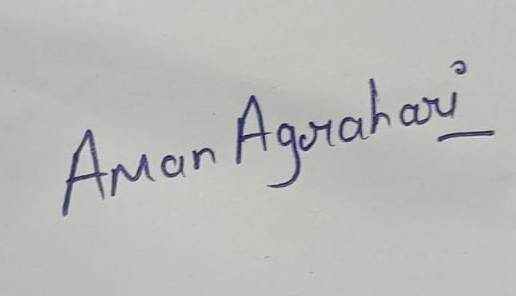 Aman Agrahari